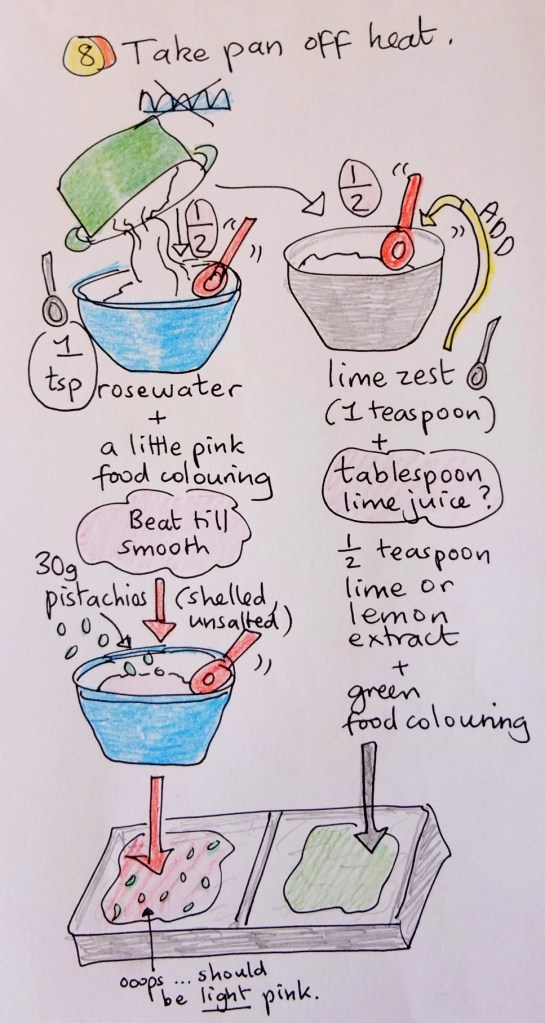 8 Take pan off heat.
1/2
1/2
ADD
1
tsp
rosewater
+
a little pink
food colouring
Beat till
smooth
30g
pistachios (shelled,
unsalted)
lime zest
(1 teaspoon)
+
tablespoon
lime juice?
1/2 teaspoon
lime or
lemon
extract
+
green
food colouring
ooops ... should
be light pink.